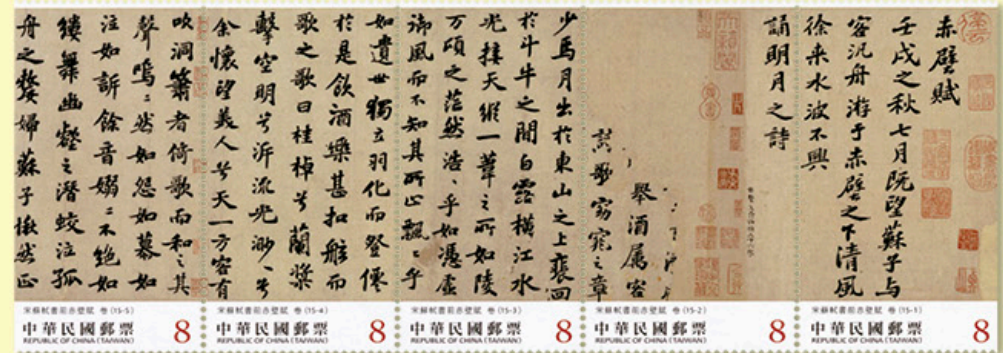 赤壁賦
壬戌之秋七月既望蘇子與
客汎舟游于赤壁之下清風
徐来水波不興
誦明月之詩
舉酒属客
歌窈窕之章
少焉月出於東山之上裵回
於斗牛之間白露橫江水
光接天縱一葦之所如陵
万頃之茫然浩〻乎如馮虛
御風而不知其所止飄〻乎
如遺世獨立羽化而登僊
於是飲酒樂甚扣舷而
歌之歌曰桂棹兮蘭槳
擊空明兮泝流光渺〻兮
余懷望美人兮天一方客有
吹洞簫者倚歌而和之其
聲嗚〻然如怨如慕如
泣如訴餘音嫋〻不絕如
縷舞幽壑之潛蛟泣孤
舟之嫠婦蘇子愀然正
宋蘇軾書前赤壁賦 卷 (15-5)
中華民國郵票
REPUBLIC OF CHINA (TAIWAN)
8
宋蘇軾書前赤壁賦 卷 (15-4)
中華民國郵票
REPUBLIC OF CHINA (TAIWAN)
8
宋蘇軾書前赤壁賦 卷 (15-3)
中華民國郵票
REPUBLIC OF CHINA (TAIWAN)
8
宋蘇軾書前赤壁賦 卷 (15-2)
中華民國郵票
REPUBLIC OF CHINA (TAIWAN)
8
宋蘇軾書前赤壁賦 卷 (15-1)
中華民國郵票
REPUBLIC OF CHINA (TAIWAN)
8